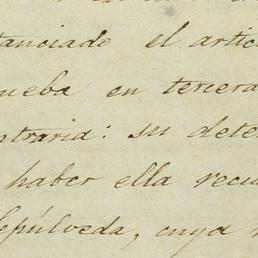 tanciado el artic
ueba en tercera
ntraria: su dete
haber ella recu
Sepúlveda, cuya